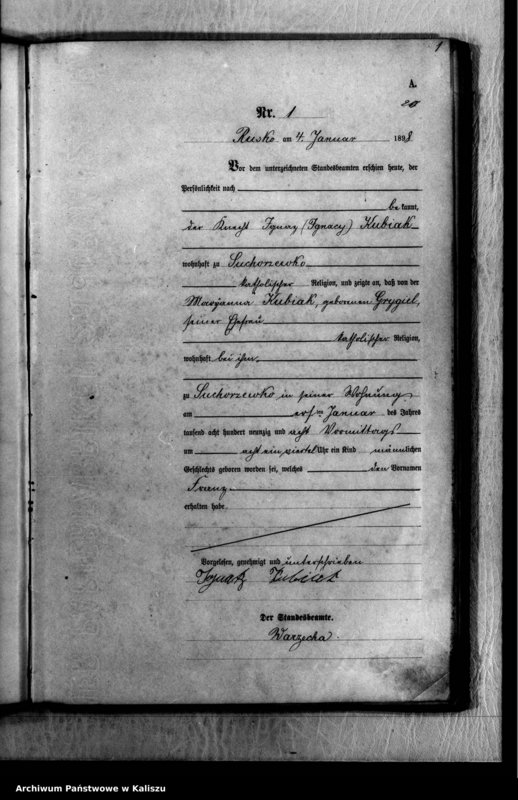 1
A.
20
Nr. 1
Rusko am 4. Januar 1898
Vor dem unterzeichneten Standesbeamten erschien heute, der
Persönlichkeit nach
bekannt,
der Knecht Ignaz (Ignacy) Kubiak
wohnhaft zu Suchorzewko
katholischer Religion, und zeigte an, daß von der
Maryanna Kubiak, geborenen Grygiel,
seiner Ehefrau
katholischer Religion,
wohnhaft bei ihm
zu Suchorzewko in seiner Wohnung
am ersten Januar des Jahres
tausend acht hundert neunzig und acht Vormittags
um acht ein viertel Uhr ein Kind männlichen
Geschlechts geboren worden sei, welches den Vornamen
Franz
erhalten habe
Vorgelesen, genehmigt und unterschrieben
Ignatz
Der Standesbeamte.
Warzecha.
Archiwum Państwowe w Kaliszu